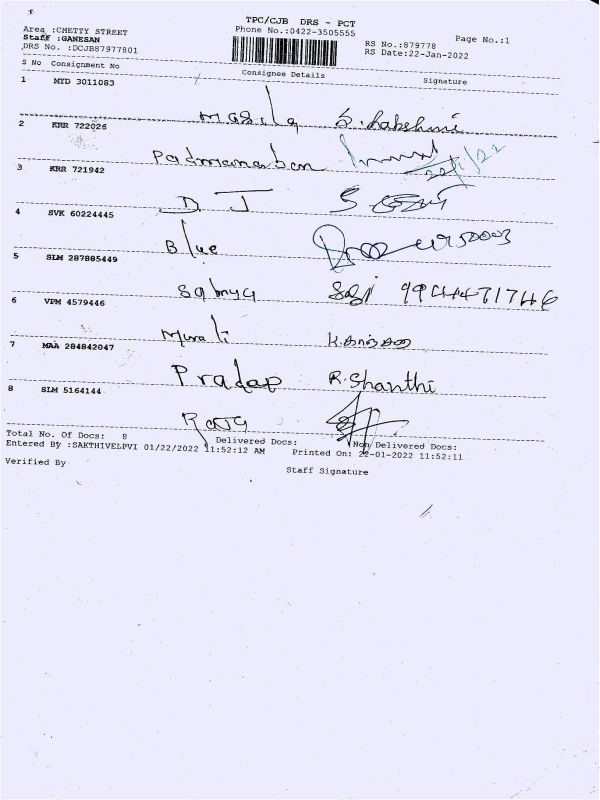 TPC/CJB DRS - PCT
Area :CHETTY STREET Phone No.:0422-3505555 Page No.:1
Staff :GANESAN RS No.:879778
DRS No. :DCJB87977801 RS Date:22-Jan-2022
S No Consignment No Consignee Details Signature
1 MYD 3011083
Masila S. Lakshmi
2 KRR 722026
Padmanaban 22/1/22
3 KRR 721942
D. J
4 SVK 60224445
Blue
5 SLM 287885449
Sabnya 9944471746
6 VPM 4579446
Murali
7 MAA 284842047
Pradap R. Shanthi
8 SLM 5164144
Total No. Of Docs: 8 Delivered Docs: Non Delivered Docs:
Entered By :SAKTHIVELPVI 01/22/2022 11:52:12 AM Printed On: 22-01-2022 11:52:11
Verified By Staff Signature